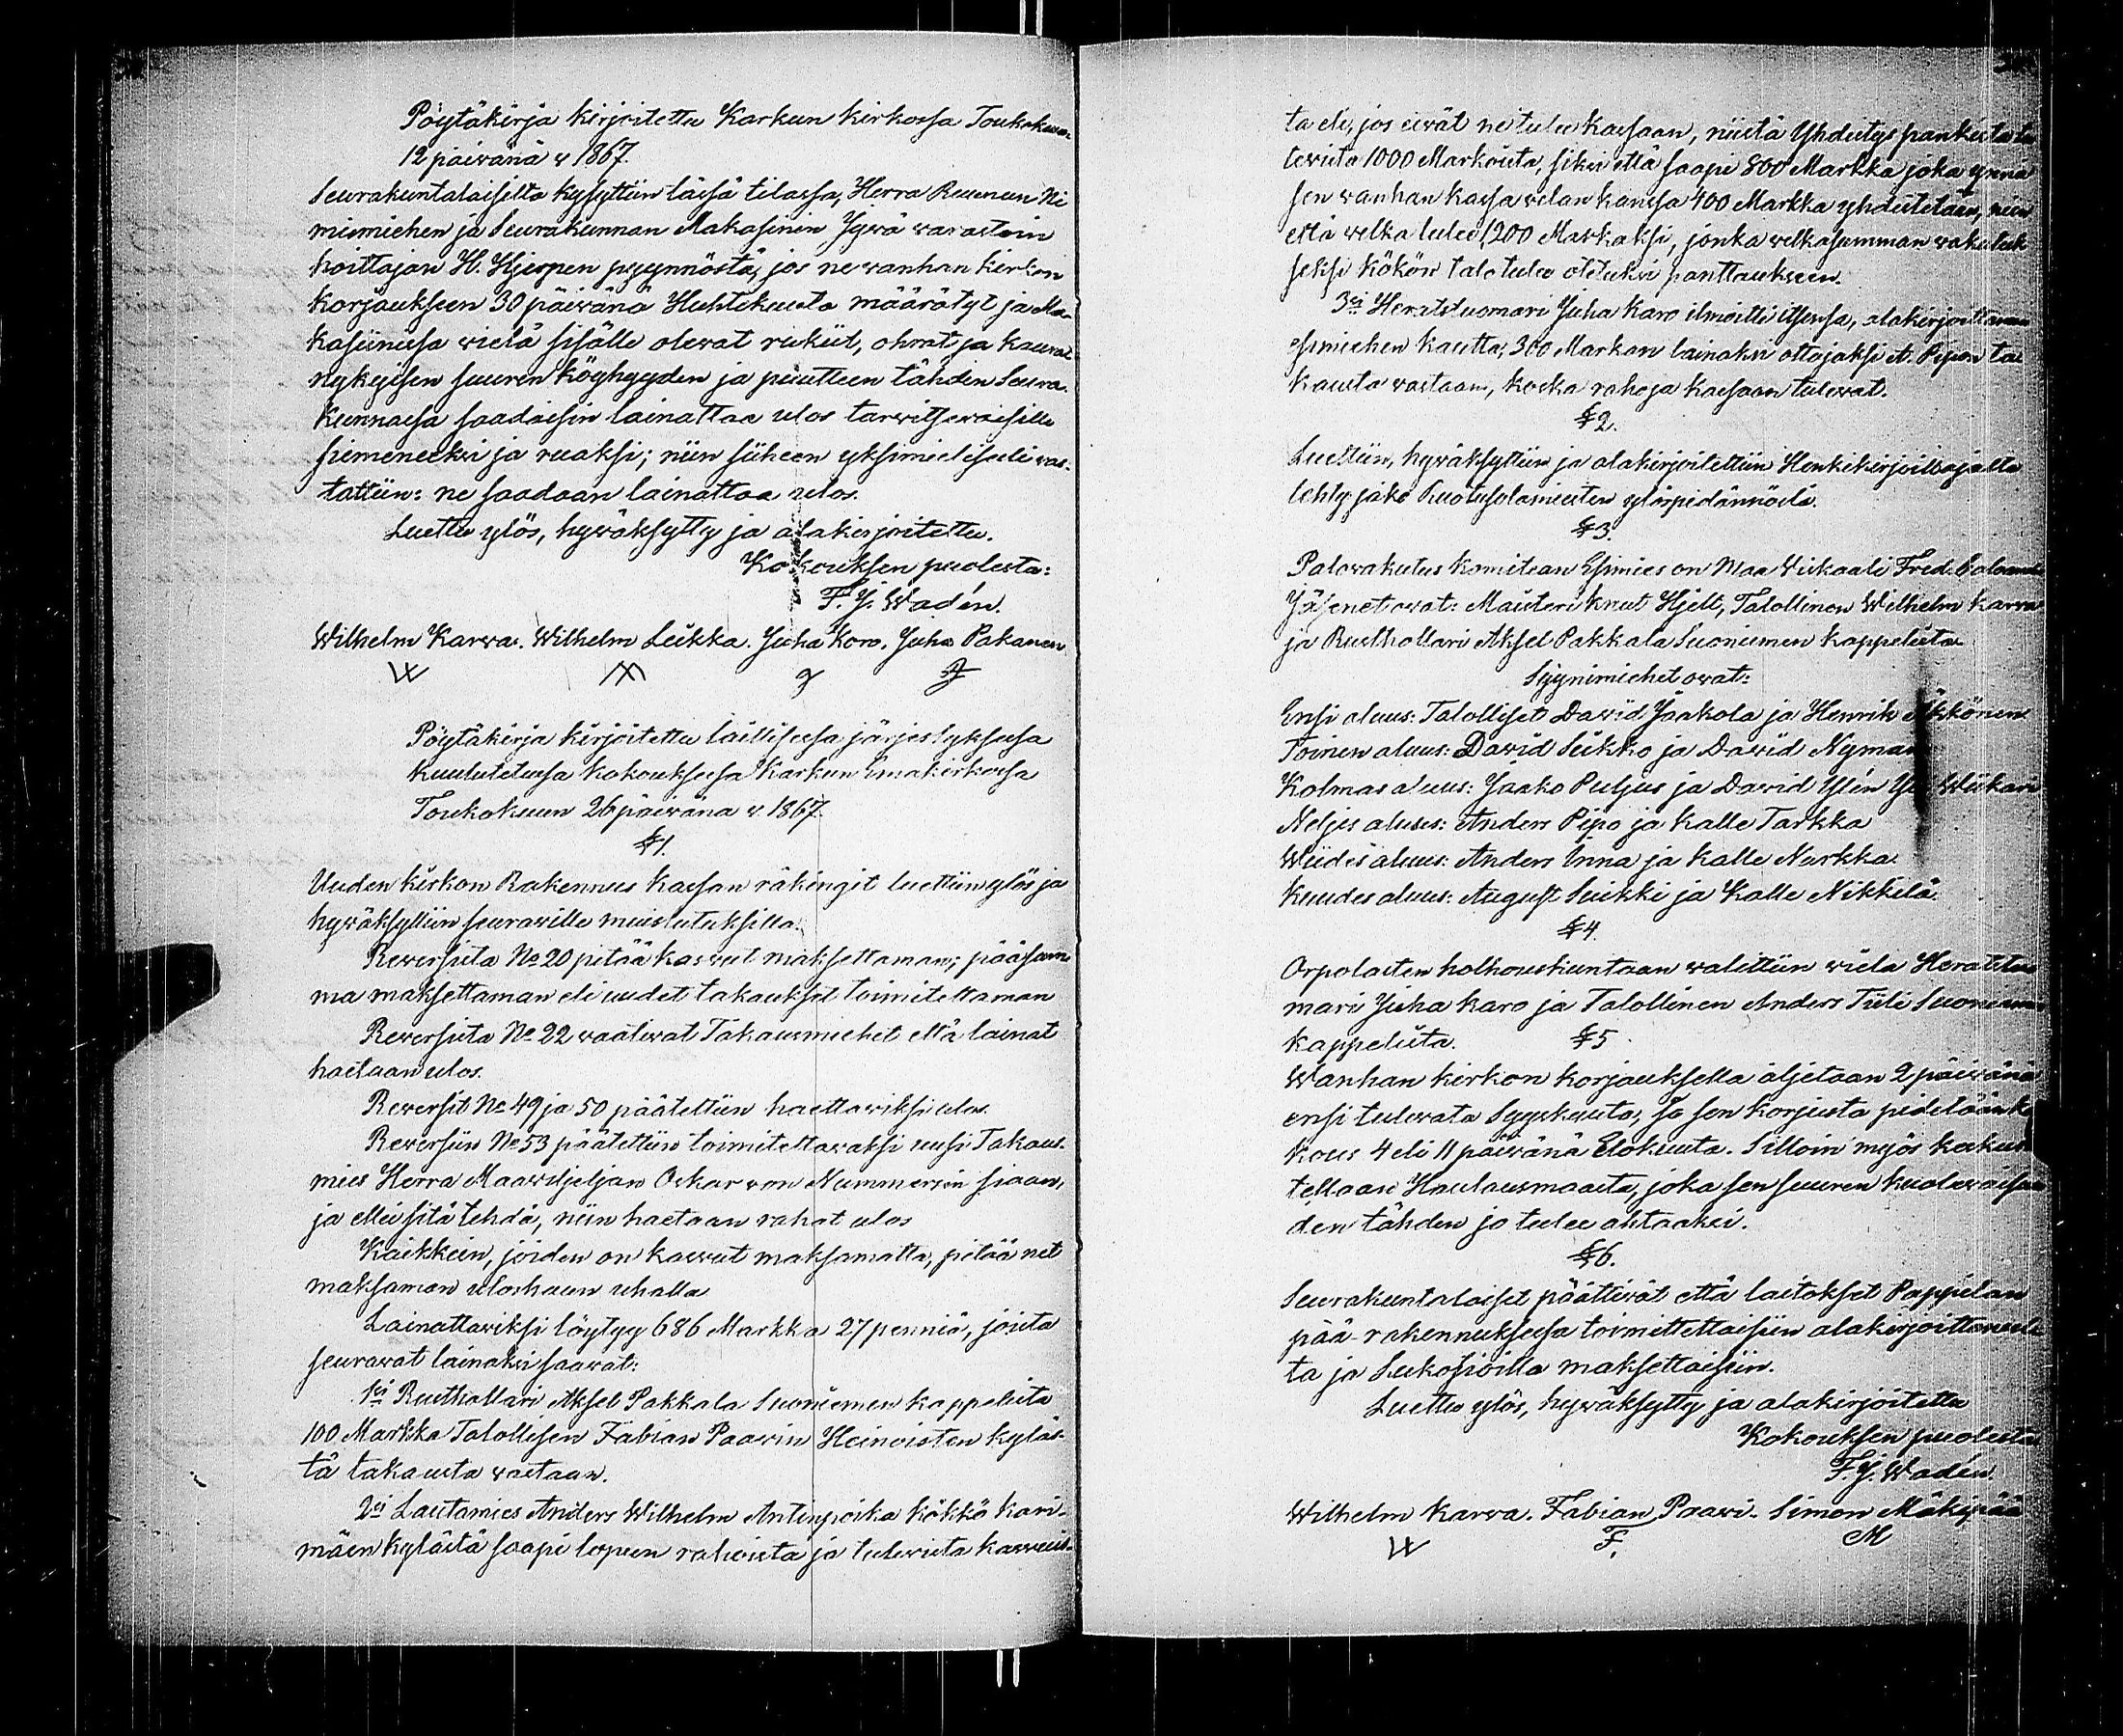 Pöytäkirja kirjoitettu Karkun kirkossa Toukokuun
12 päivänä v 1867.
Seurakuntalaisilta kysyttiin tässä tilassa, Herra Ruunun Ni
mismiehen ja Seurakunnan Makasinin Jyvä varastoin
hoittajan H. Hjerpen pyynnöstä, jos ne vanhan kirkon
korjaukseen 30 päivänä Huhtikuuta määrätyt ja Ma-
kasiinissa vielä sisälle olevat rukiit, ohrat ja kaurat
nykyisen suuren köyhyyden ja puutteen tähden Seura-
kunnassa saadaisiin lainattaa ulos tarvitsevaisille
siemeneeksi ja ruaksi; niin siiheen yksimielisesti vas-
tattiin: ne saadaan lainattaa ulos.
Luettu ylös, hyväksytty ja alakirjoitettu.
Kokouksen puolesta:
F. J. Wadén.
Wilhelm Karva. Wilhelm Liikka. Juha Koro. Juha Pakanen
Pöytäkirja kirjoitettu laillisessa järjestyksessä
kuulutetussa kokouksessa Karkun Emäkirkossa
Toukokuun 26 päivänä v. 1867.
§1.
Uuden kirkon Rakennus kassan räkingit luettiin ylös ja
hyväksyttiin seuraville muistutuksilla:
Reversista No 20 pitää kasvut maksettaman; pääsum
ma maksettaman eli uudet takaukset toimitettaman
Reversista No 22 vaativat Takausmiehet että lainat
haetaan ulos.
Reversit No 49 ja 50 päätettiin haettaviksi ulos.
Reversiin No 53 päätettiin toimitettavaksi uusi Takaus-
mies Herra Maaviljeljan Oskar von Nummersin siaan,
ja ellei sitä tehdä, niin haetaan rahat ulos
Kaikkein, joiden on kasvut maksamatta, pitää net
maksaman uloshaun uhalla
Lainattaviksi löytyy 686 Markka 27 penniä, joista
seuraavat lainaksi saavat:
1ksi Rusthollari Aksel Pakkala Suoniemen kappelista
100 Markka Talollisen Fabian Paavin Heinoisten kyläs-
tä takausta vastaan.
2ksi Lautamies Anders Wilhelm Antinpoika Kökkö Kari-
mäen kylästä saapi lopun rahoista ja tulevista kasvuis-
ta eli, jos eivät ne tule kassaan, niistä Yhdistys pankista
tevista 1000 Markoista, siksi että saapi 800 Markka joka ynnä
sen vanhan kassa velan kanssa 400 Markka yhdistetään, niin
että velka tulee 1200 Markaksi, jonka velkasumman vakuluk
seksi Kökön talo tulee otetuksi panttaukseen.
3ksi Heratstuomari Juha Karo ilmoitti itsensä, alakirjoittaneen
esimiehen kautta, 300 Markan lainaksi ottajaksi A. Pipon ta
kausta vastaan, koska rahoja kassaan tulevat.
§2.
Luettiin, hyväksyttiin ja alakirjoitettiin Henkikirjoittajalta
tehty jako Ruotusolamiesten ylöspidännöstä.
§3.
Palovakutus komitean Esimies on Maa Viskaali Fred.
Jäsenet ovat: Maisteri Knut Hjelt, Talollinen Wilhelm Karva
ja Rusthollari Aksel Pakkala Suoniemen kappelista
Syynimiehet ovat:
Ensi aluus: Talolliset David Jaakola ja Henrik
Toinen aluus: David Siikko ja David Nyman
Kolmas aluus: Jaako Puljus ja David Ylén Yli Wiikari
Neljes aluus: Anders Pipo ja Kalle Tarkka
Wiides aluus: Anders Inna ja Kalle Narkka.
Kuudes aluus: August Suikki ja Kalle Nikkilä.
§4.
Orpolasten holhouskuntaan valittiin vielä Heratstuo
mari Juha Karo ja Talollinen Anders Tiili Suoniemen
kappelista. §5.
Wanhan kirkon korjauksella aljetaan 2 päivänä
ensi tulevata Syyskuuta, Ja sen korjusta pidetään ko
kous 4 eli 11 päivänä Elokuuta. Silloin myös keskus
tellaan Hautausmaasta, joka sen suuren kuolevaisuu
den tähden jo tulee ahtaaksi.
§6.
Seurakuntalaiset päättivät että laitokset Pappilan
pää-rakennuksessa toimittettaisiin alakirjoittaneel
ta ja Lukosioilla maksettaisiin.
Luettu ylös, hyväksytty ja alakirjoitettu
Kokouksen puolesta
F. J. Wadén.
Wilhelm Karva. Fabian Paavi. Simon Mäkipää
F. M